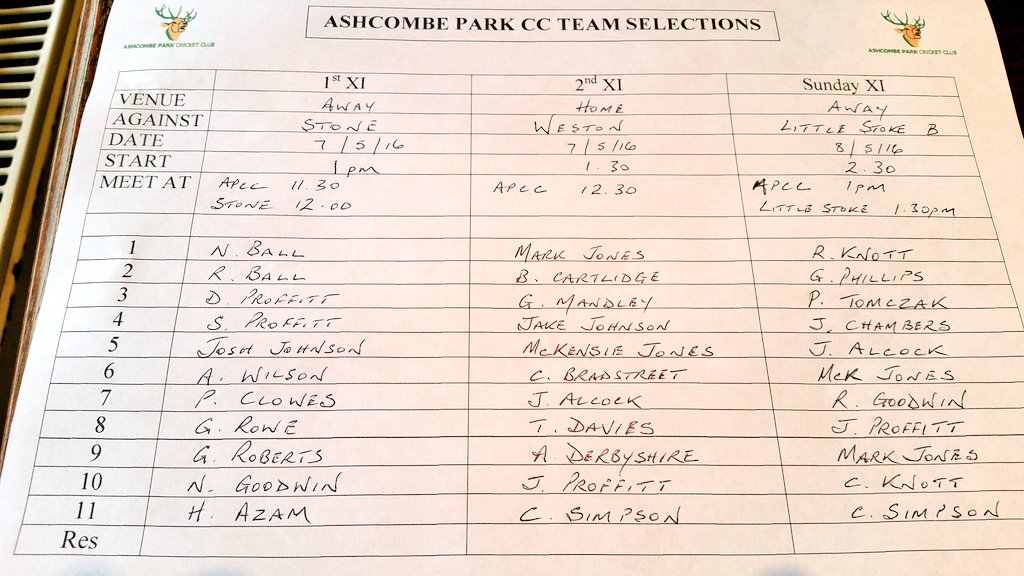 ASHCOMBE PARK CC TEAM SELECTIONS
ASHCOMBE PARK CRICKET CLUB
ASHCOMBE PARK CRICKET CLUB
1st XI 2nd XI Sunday XI
VENUE AWAY HOME AWAY
AGAINST STONE WESTON LITTLE STOKE B
DATE 7/5/16 7/5/16 8/5/16
START 1pm 1.30 2.30
MEET AT APCC 11.30 APCC 12.30 APCC 1PM
STONE 12.00 LITTLE STOKE 1.30PM
1 N. BALL MARK JONES R. KNOTT
2 R. BALL B. CARTLIDGE G. PHILLIPS
3 D. PROFFITT G. MANDLEY P. TOMCZAK
4 S. PROFFITT JAKE JOHNSON J. CHAMBERS
5 JOSH JOHNSON MCKENSIE JONES J. ALCOCK
6 A. WILSON C. BRADSTREET McK JONES
7 P. CLOWES J. ALCOCK R. GOODWIN
8 G. ROWE T. DAVIES J. PROFFITT
9 G. ROBERTS A. DERBYSHIRE MARK JONES
10 N. GOODWIN J. PROFFITT C. KNOTT
11 H. AZAM C. SIMPSON C. SIMPSON
Res